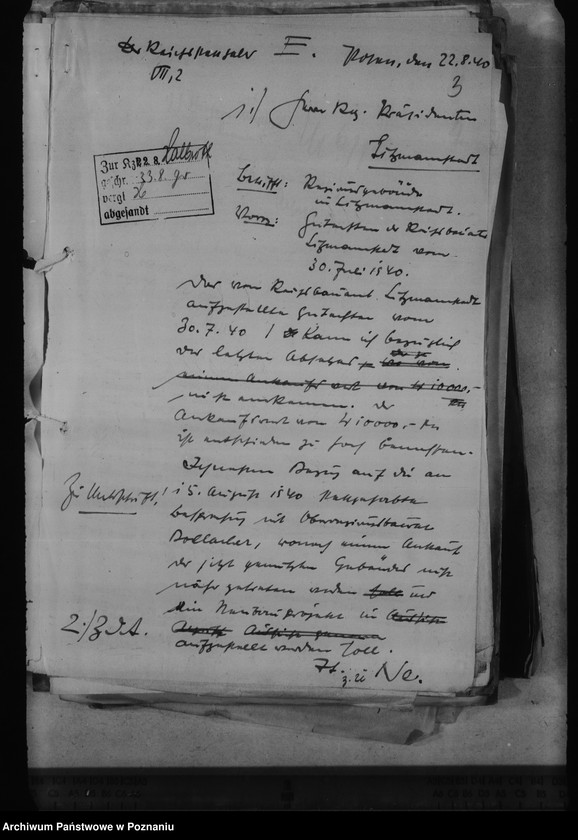 Der Reichsstatthalter
VII,2
II.
Posen, den 22.8.40
3
1.) Herrn Reg. Präsidenten
Litzmannstadt
Zur Kzl. 22.8.
geschr. 23.8.
vergl.
abgesandt
Betrifft: Regierungsgebäude
in Litzmannstadt.
Vorg.: Gutachten des Reichsbauamts
Litzmannstadt vom
30. Juli 1940.
Das vom Reichsbauamt Litzmannstadt
aufgestellte Gutachten vom
30.7.40 kann ich bezüglich
des letzten Absatzes
einem Ankaufswert von 410000,-
nicht anerkennen. Der
Ankaufswert von 410000,-
ist entschieden zu hoch bemessen.
Zu Unterschrift!
Bezug auf die am
15. August 1940 stattgehabte
Besprechung mit Oberregierungsbaurat
wonach einem Ankauf
der jetzt genutzten Gebäude nicht
näher getreten werden und
ein Neubauprojekt in
aufgestellt werden soll.
2.) Z.d.A.